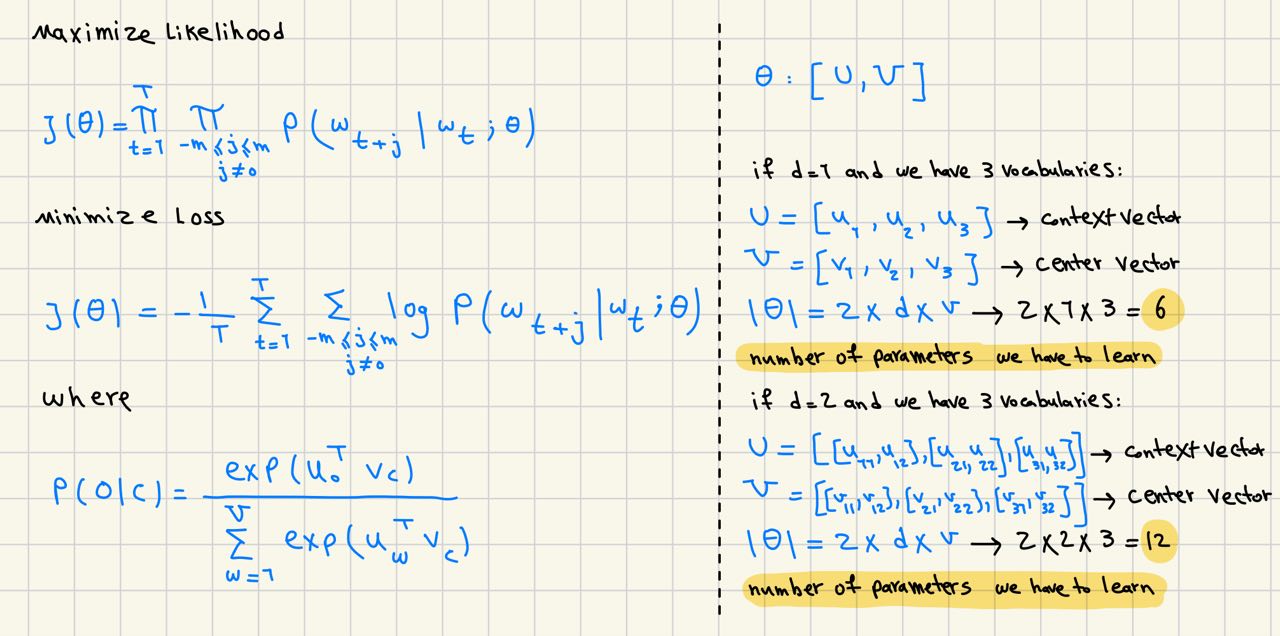 Maximize Likelihood
J(θ) = ∏_{t=1}^{T} ∏_{-m≤j≤m, j≠0} P(w_{t+j} | w_t ; θ)
Minimize Loss
J(θ) = -1/T ∑_{t=1}^{T} ∑_{-m≤j≤m, j≠0} log P(w_{t+j} | w_t ; θ)
where
P(O|C) = exp(u_o^T v_c) / ∑_{w=1}^{V} exp(u_w^T v_c)
θ : [U, V]
if d=1 and we have 3 vocabularies:
U = [u_1, u_2, u_3] → context vector
V = [v_1, v_2, v_3] → center vector
|θ| = 2 x d x v → 2 x 1 x 3 = 6
number of parameters we have to learn
if d=2 and we have 3 vocabularies:
U = [[u_11, u_12], [u_21, u_22], [u_31, u_32]] → context vector
V = [[v_11, v_12], [v_21, v_22], [v_31, v_32]] → center vector
|θ| = 2 x d x v → 2 x 2 x 3 = 12
number of parameters we have to learn